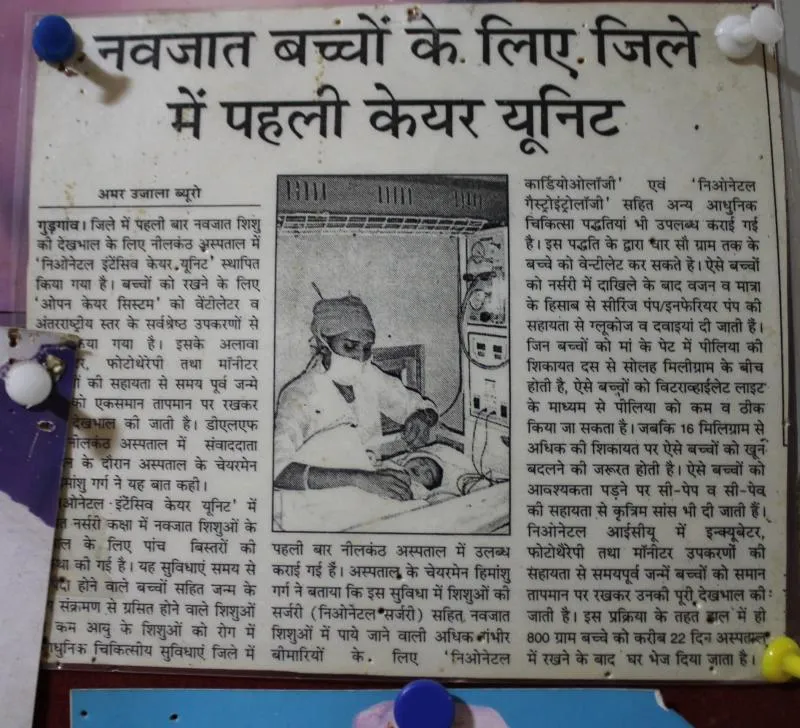 नवजात बच्चों के लिए जिले
में पहली केयर यूनिट
अमर उजाला ब्यूरो
गुड़गांव। जिले में पहली बार नवजात शिशु
की देखभाल के लिए नीलकंठ अस्पताल में
'निओनेटल इंटेंसिव केयर यूनिट' स्थापित
किया गया है। बच्चों को रखने के लिए
'ओपन केयर सिस्टम' को वेंटोलेटर व
अंतरराष्ट्रीय स्तर के सर्वश्रेष्ठ उपकरणों से
गया है। इसके अलावा
फोटोथेरेपी तथा मॉनीटर
की सहायता से समय पूर्व जन्मे
को एकसमान तापमान पर रखकर
देखभाल की जाती है। डीएलएफ
नीलकंठ अस्पताल में संवाददाता
के दौरान अस्पताल के चेयरमेन
गर्ग ने यह बात कही।
इंटेंसिव केयर यूनिट' में
नर्सरी कक्षा में नवजात शिशुओं के
के लिए पांच बिस्तरों की
की गई है। यह सुविधाएं समय से
होने वाले बच्चों सहित जन्म के
संक्रमण से ग्रसित होने वाले शिशुओं
कम आयु के शिशुओं को रोग में
चिकित्सीय सुविधाएं जिले में
पहली बार नीलकंठ अस्पताल में उलब्ध
कराई गई हैं। अस्पताल के चेयरमेन हिमांशु
गर्ग ने बताया कि इस सुविधा में शिशुओं की
सर्जरी (निओनेटल सर्जरी) सहित नवजात
शिशुओं में पाये जाने वाली अधिक गंभीर
बीमारियों के लिए 'निओनेटल
कार्डियोओलॉजी' एवं 'निओनेटल
गैस्ट्रोइंट्रोलॉजी' सहित अन्य आधुनिक
चिकित्सा पद्धतियां भी उपलब्ध कराई गई
है। इस पद्धति के द्वारा चार सौ ग्राम तक के
बच्चे को वेन्टीलेट कर सकते हे। ऐसे बच्चों
को नर्सरी में दाखिले के बाद वजन व मात्रा
के हिसाब से सीरिंज पंप/इनफेरियर पंप की
सहायता से ग्लूकोज व दवाइयां दी जाती है।
जिन बच्चों को मां के पेट में पीलिया की
शिकायत दस से सोलह मिलीग्राम के बीच
होती है, ऐसे बच्चों को विटराव्हाईलेट लाइट
के माध्यम से पीलिया को कम व ठीक
किया जा सकता है। जबकि 16 मिलिग्राम से
अधिक की शिकायत पर ऐसे बच्चों को खून
बदलने की जरूरत होती है। ऐसे बच्चों को
आवश्यकता पड़ने पर सी-पेप व सी-पेव
की सहायता से कृत्रिम सांस भी दी जाती हैं।
निओनेटल आईसीयू में इन्क्यूबेटर,
फोटोथेरेपी तथा मॉनीटर उपकरणों की
सहायता से समयपूर्व जन्में बच्चों को समान
तापमान पर रखकर उनकी पूरी देखभाल की
जाती है। इस प्रक्रिया के तहत हाल में ही
800 ग्राम बच्चे को करीब 22 दिन अस्पताल
में रखने के बाद घर भेज दिया जाता है।